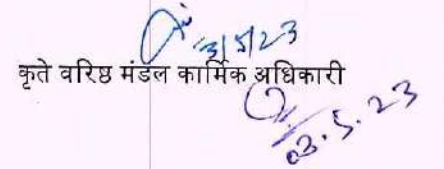 3/5/23
कृते वरिष्ठ मंडल कार्मिक अधिकारी
03.5.23